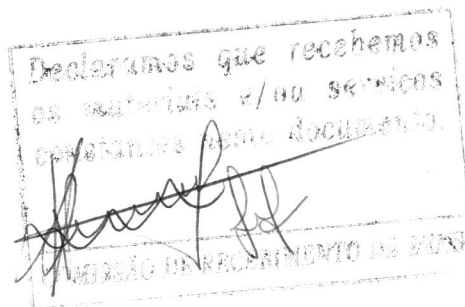 Declaramos que recebemos
os materiais e/ou serviços
constantes neste documento.
MISSÃO DE RECEBIMENTO DE